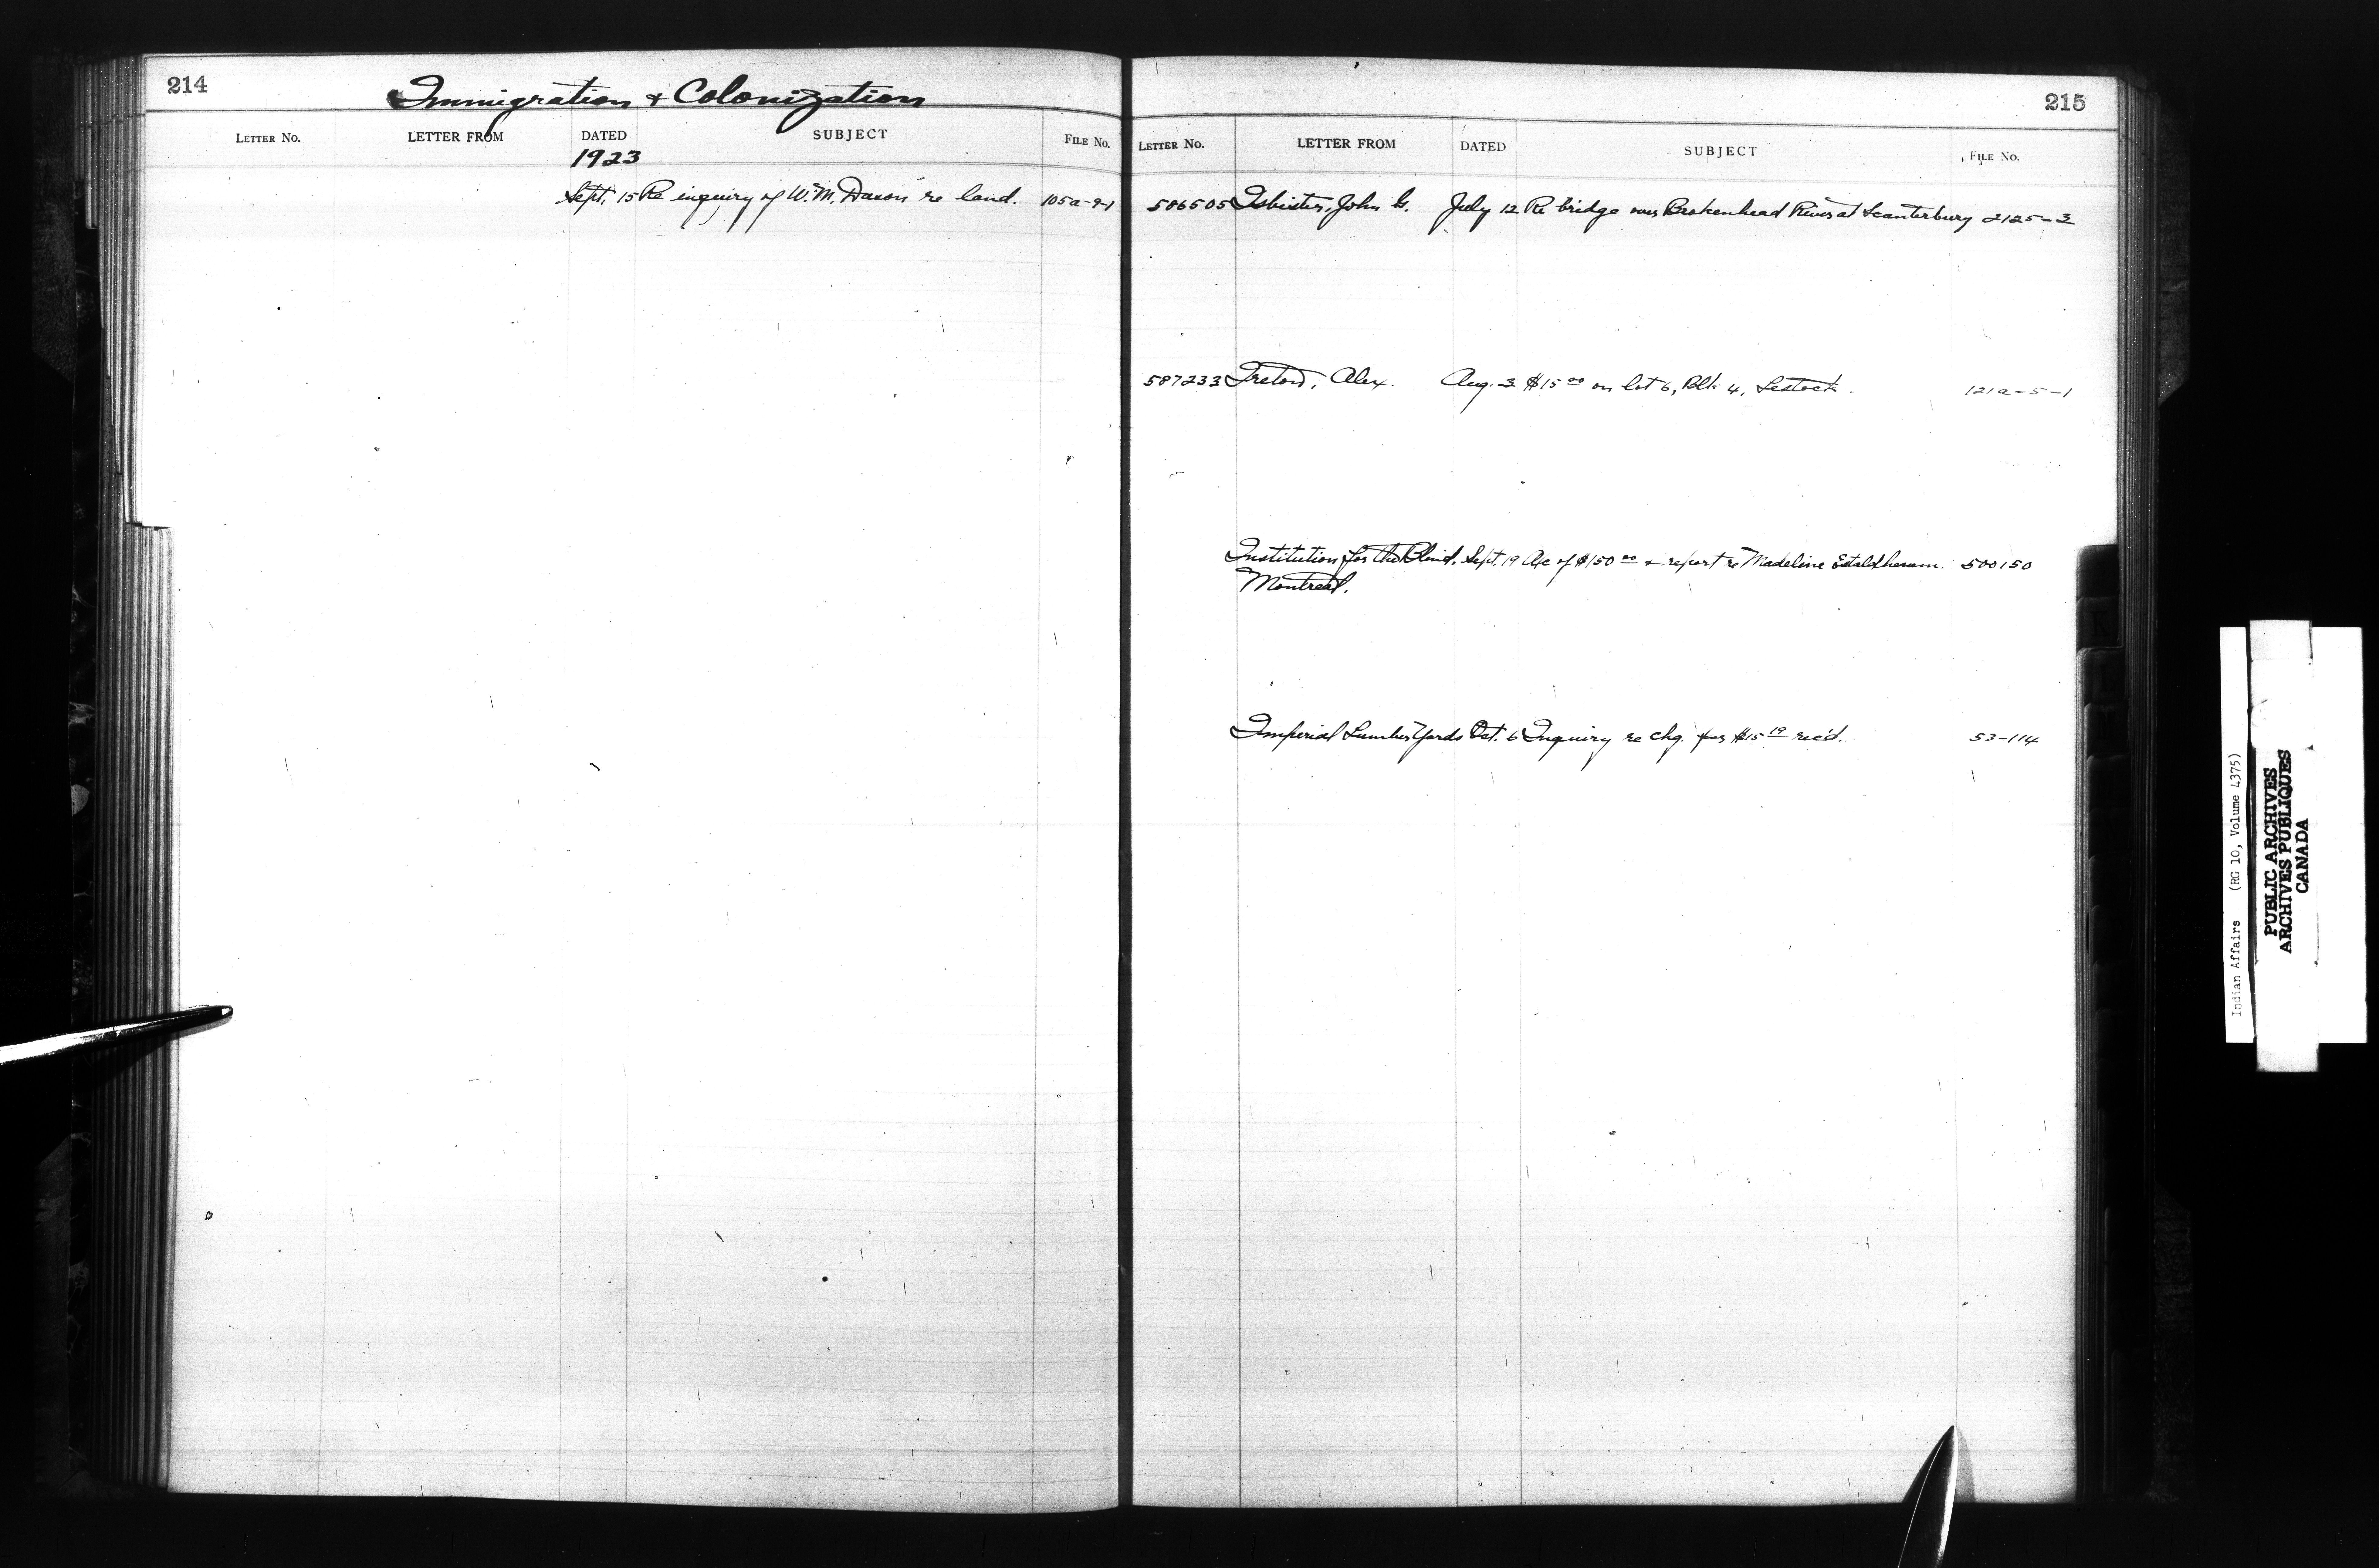 214
Immigration & Colonization
LETTER No. LETTER FROM DATED SUBJECT FILE No.
1923
Sept. 15 Re inquiry of W. M. re land. 105a-9-1
215
LETTER No. LETTER FROM DATED SUBJECT FILE No.
586505 Isbister, John G. July 12 Re bridge over Brokenhead River at Scanterbury 2125-3
587233 Alex. Aug. 3 $15 00 on lot 6, Blk 4, Lestock. 121a-5-1
Institution for the Blind, Sept. 19 a/c of $150 00 & report re Madeline 500150
Montreal.
Imperial Lumber Yards Oct. 6 Inquiry re chq. for $15 19 rec'd. 53-114
K
Indian Affairs (RG 10, Volume 4375)
PUBLIC ARCHIVES
ARCHIVES PUBLIQUES
CANADA